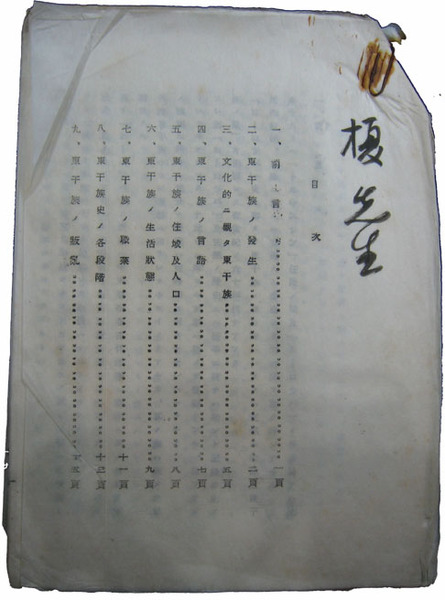 榎先生
目次
一、前言・・・・・・・・・・・・・・・・・・一頁
二、東干族ノ發生・・・・・・・・・・・・・・・・・・二頁
三、文化的ニ觀タ東干族・・・・・・・・・・・・・・・・・・五頁
四、東干族ノ言語・・・・・・・・・・・・・・・・・・七頁
五、東干族ノ住域及人口・・・・・・・・・・・・・・・・・・八頁
六、東干族ノ生活狀態・・・・・・・・・・・・・・・・・・九頁
七、東干族ノ職業・・・・・・・・・・・・・・・・・・十一頁
八、東干族史ノ各段階・・・・・・・・・・・・・・・・・・十三頁
九、東干族ノ叛亂・・・・・・・・・・・・・・・・・・十五頁